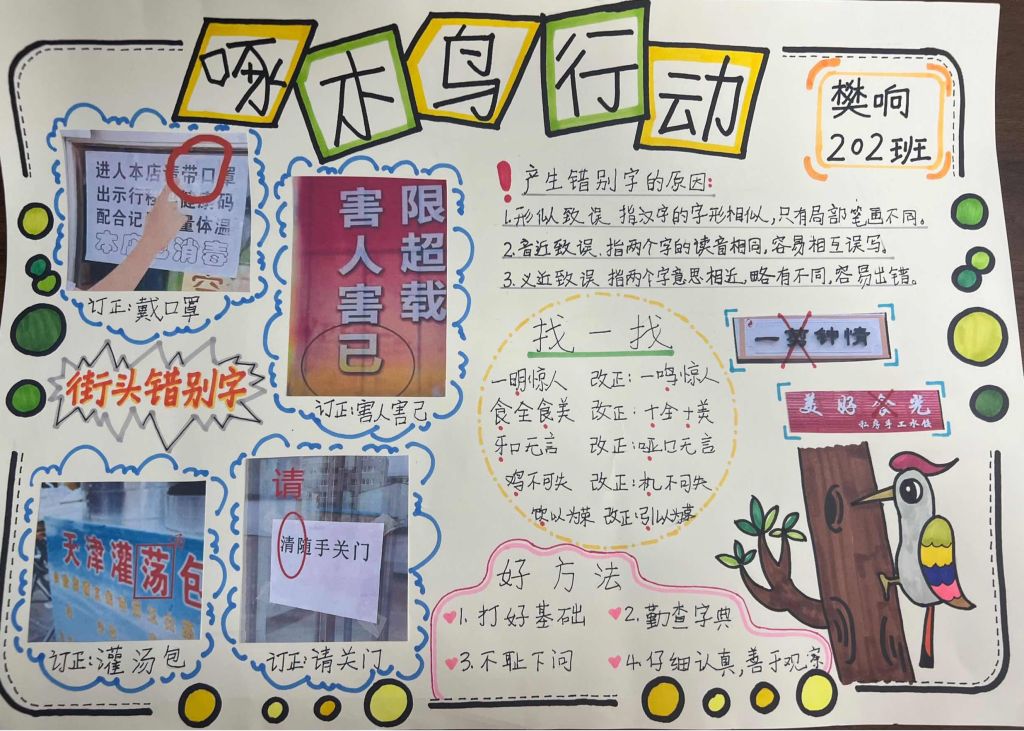 啄木鸟行动
樊响
202班
进人本店请带口罩
出示行程 健康码
配合记 量体温
本店已消毒
订正:戴口罩
限超载
害人害己
订正:害人害己
街头错别字
天津灌荡包
订正:灌汤包
请
清随手关门
订正:请关门
产生错别字的原因:
1.形似致误 指汉字的字形相似,只有局部笔画不同。
2.音近致误.指两个字的读音相同,容易相互误写。
3.义近致误 指两个字意思相近,略有不同,容易出错。
找一找
一明惊人 改正:一鸣惊人
食全食美 改正:十全十美
牙口无言 改正:哑口无言
鸡不可失 改正:机不可失
饮以为荣 改正:引以为荣
一剪钟情
美好食光
私房手工水饺
好方法
1.打好基础
2.勤查字典
3.不耻下问
4.仔细认真,善于观察